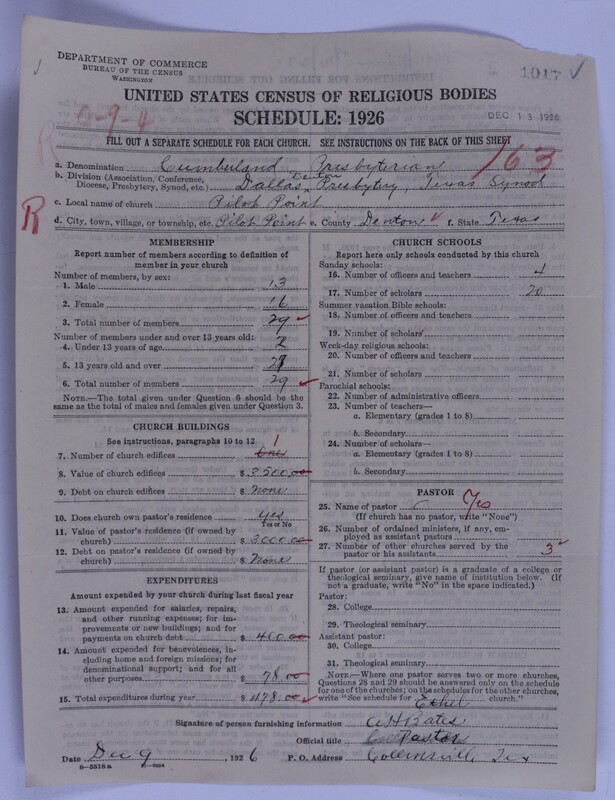 DEPARTMENT OF COMMERCE
BUREAU OF THE CENSUS
WASHINGTON
1017
UNITED STATES CENSUS OF RELIGIOUS BODIES
SCHEDULE: 1926
DEC 13 1926
2-9-4
R
FILL OUT A SEPARATE SCHEDULE FOR EACH CHURCH. SEE INSTRUCTIONS ON THE BACK OF THIS SHEET
163
a. Denomination Cumberland Presbyterian
b. Division (Association, Conference, Diocese, Presbytery, Synod, etc.) Dallas Denton Presbytery, Texas Synod
c. Local name of church Pilot Point
R
d. City, town, village, or township, etc. Pilot Point e. County Denton f. State Texas
MEMBERSHIP
Report number of members according to definition of member in your church
Number of members, by sex:
1. Male 13
2. Female 16
3. Total number of members 29
Number of members under and over 13 years old:
4. Under 13 years of age 2
5. 13 years old and over 27
6. Total number of members 29
NOTE.—The total given under Question 6 should be the same as the total of males and females given under Question 3.
CHURCH BUILDINGS
See instructions, paragraphs 10 to 12
7. Number of church edifices One 1
8. Value of church edifices $ 3500.00
9. Debt on church edifices $ None
10. Does church own pastor's residence yes
Yes or No
11. Value of pastor's residence (if owned by church) $ 3000.00
12. Debt on pastor's residence (if owned by church) $ None
EXPENDITURES
Amount expended by your church during last fiscal year
13. Amount expended for salaries, repairs, and other running expenses; for improvements or new buildings; and for payments on church debt $ 400.00
14. Amount expended for benevolences, including home and foreign missions; for denominational support; and for all other purposes $ 78.00
15. Total expenditures during year $ 478.00
CHURCH SCHOOLS
Report here only schools conducted by this church
Sunday schools:
16. Number of officers and teachers 4
17. Number of scholars 20
Summer vacation Bible schools:
18. Number of officers and teachers
19. Number of scholars
Week-day religious schools:
20. Number of officers and teachers
21. Number of scholars
Parochial schools:
22. Number of administrative officers
23. Number of teachers—
a. Elementary (grades 1 to 8)
b. Secondary
24. Number of scholars—
a. Elementary (grades 1 to 8)
b. Secondary
PASTOR
25. Name of pastor Yes
(If church has no pastor, write "None")
26. Number of ordained ministers, if any, employed as assistant pastors
27. Number of other churches served by the pastor or his assistants 3
If pastor (or assistant pastor) is a graduate of a college or theological seminary, give name of institution below. (If not a graduate, write "No" in the space indicated.)
Pastor:
28. College
29. Theological seminary
Assistant pastor:
30. College
31. Theological seminary
NOTE.—Where one pastor serves two or more churches, Questions 28 and 29 should be answered only on the schedule for one of the churches; on the schedules for the other churches, write "See schedule for Ethel church."
Signature of person furnishing information A H Bates
Official title Pastor
Date Dec 9, 1926 P. O. Address Collinsville, Tex
8—5518a